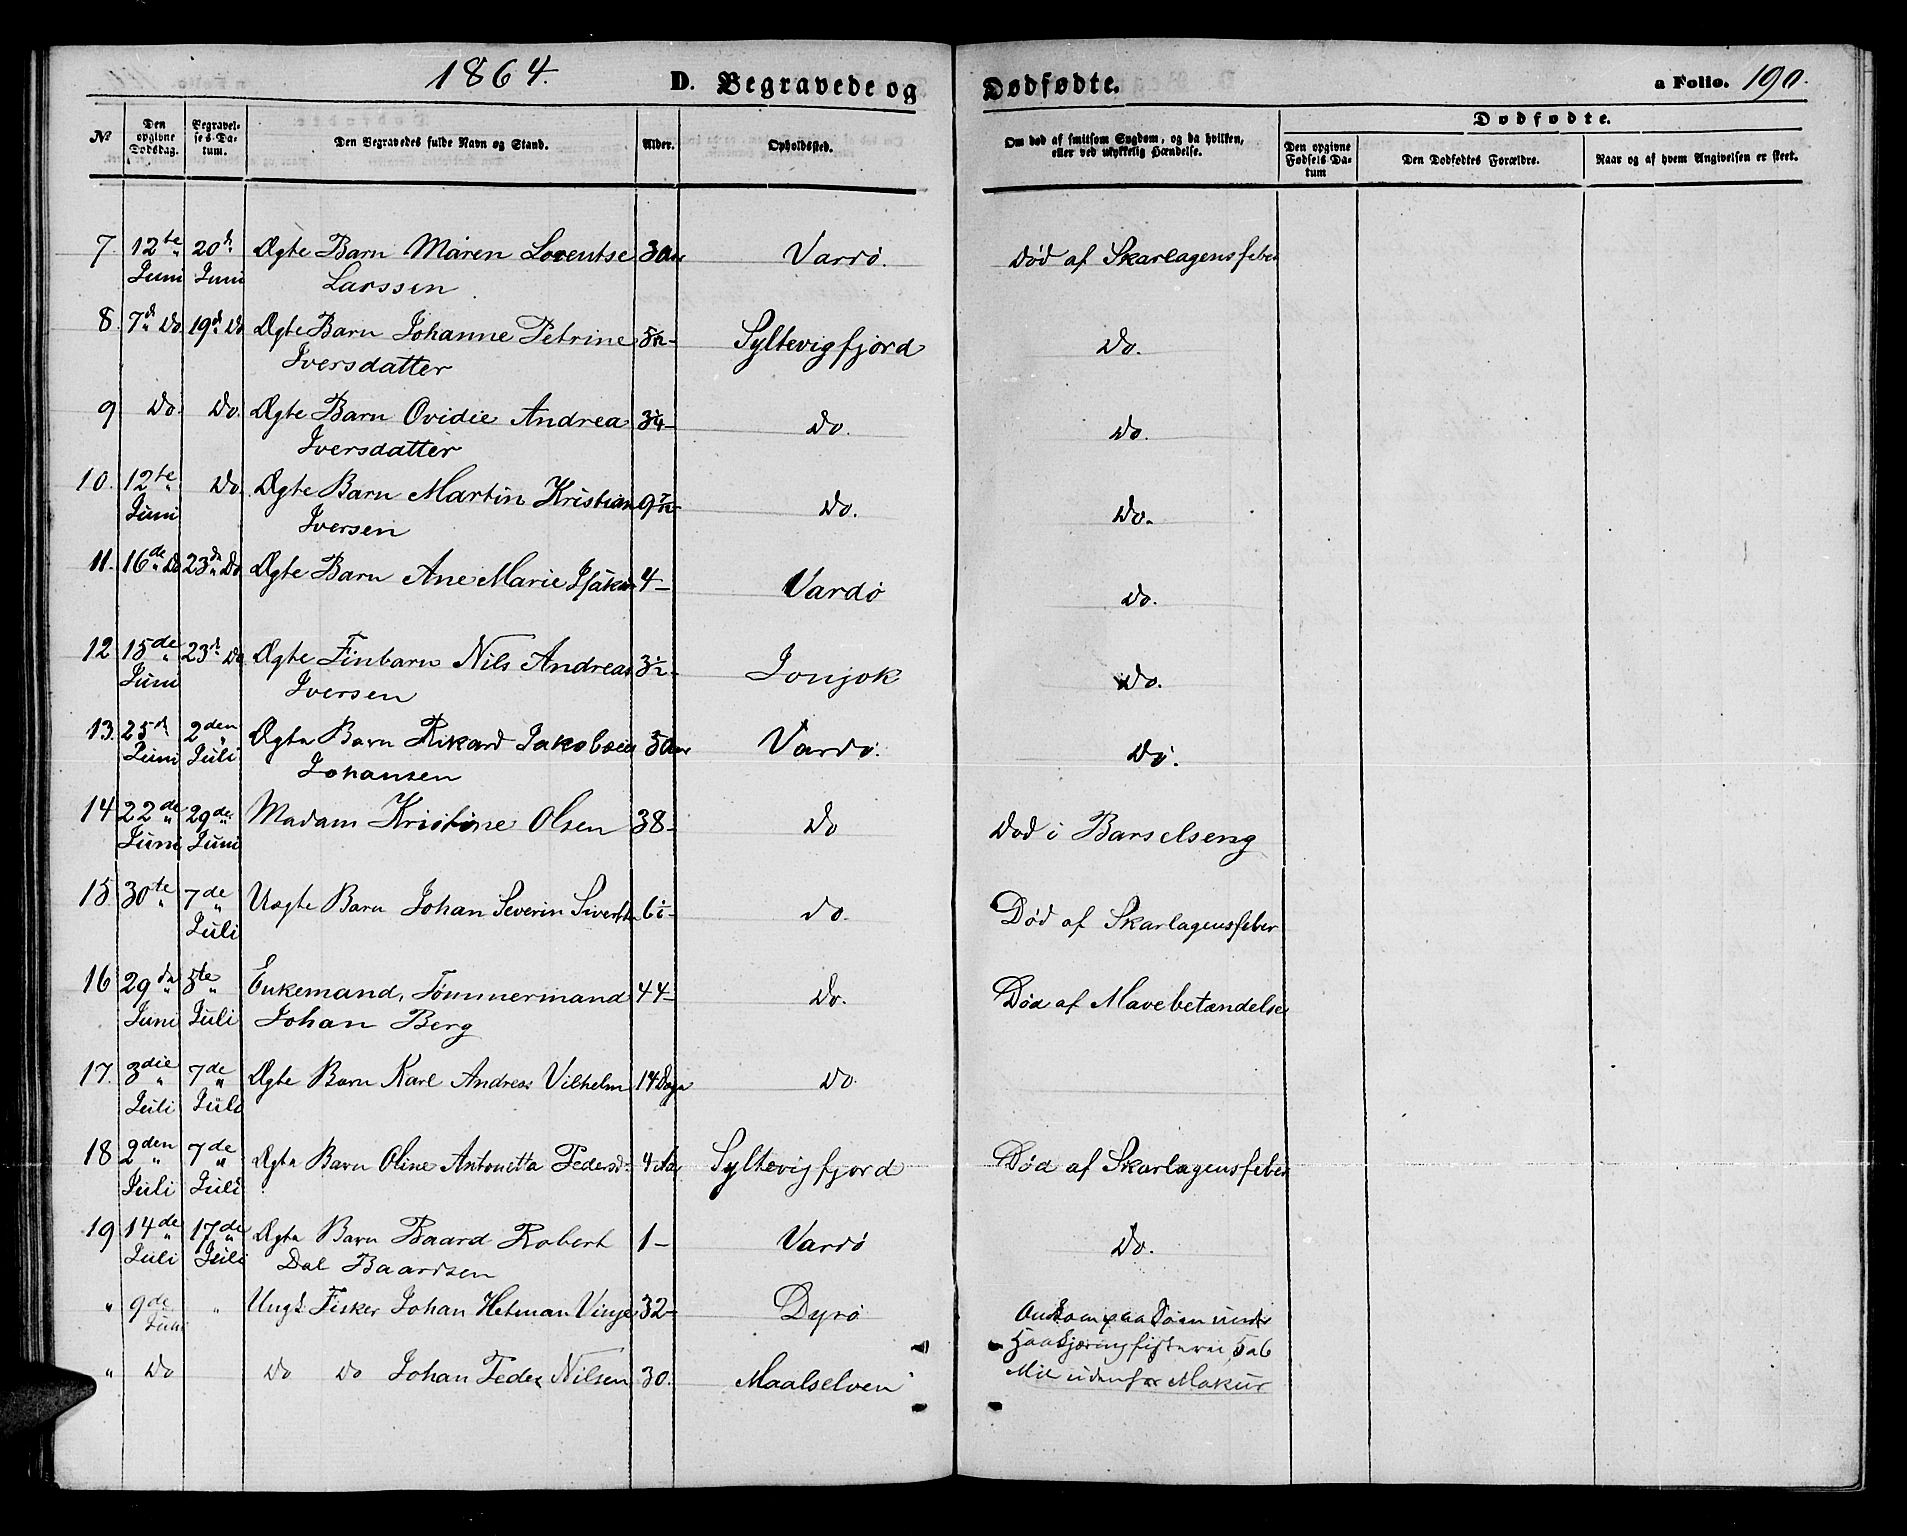 1864. D. Begravede og Dødfødte. a Folio. 190.
№ Den opgivne Dødsdag. Begravelses-Datum. Den Begravedes fulde Navn og Stand. Alder. Opholdssted. Om død af smitsom Sygdom, og da hvilken, eller ved ulykkelig Hændelse. Dødfødte.
Den opgivne Fødsels Datum Den Dødfødtes Forældre. Naar og af hvem Angivelsen er skeet.
7. 12te 20d Ægte Barn Maren Lorentse 3 Aar Vardø. Død af Skarlagensfeber
Juni Juni Larssen
8. 7d Do 19d Do Ægte Barn Johanne Petrine Syltevigfjord Do.
Iversdatter
9 Do. Do. Ægte Barn Ovidie Andrea Do. Do.
Iversdatter
10. 12te Do. Ægte Barn Martin Kristian Do. Do.
Juni Iversen
11. 16de Do 23de Do Ægte Barn Ane Marie 4- Vardø Do.
12 15de 23d Do Ægte Finbarn Nils Andreas 3½- Jonjok Do.
Juni Iversen
13. 25d 2den Ægte Barn Rikard Jakobæus Vardø. Do.
Juni Juli Johansen
14 22de 29de Madam Kristine Olsen 38- Do Død i Barselseng
Juni Juni
15 30te 7de Uægte Barn Johan Severin Do. Død af Skarlagensfeber
Juli
16 29de 5te Enkemand, Tømmermand 44- Do. Død af Mavebetændelse
Juni Juli Johan Berg
17. 3die 7de Ægte Barn Karl Andreas Vilhelm 14 Dage Do
Juli Juli
18 2den 7de Ægte Barn Oline Antonetta Pedersd: 4 Aar Syltevigfjord Død af Skarlagensfeber
Juli Juli
19 14de 17de Ægte Barn Baard Robert 1- Vardø Do.
Juli Juli Dal Baardsen
" 9de " Ungk. Fisker Johan Hetman Vinje 32- Dyrø Omkom paa Søen under
Juni Haakjæringfisteriet, 5 a 6
" Do Do Do Johan Peder Nilsen 30. Maalselven Mil udenfor Makur